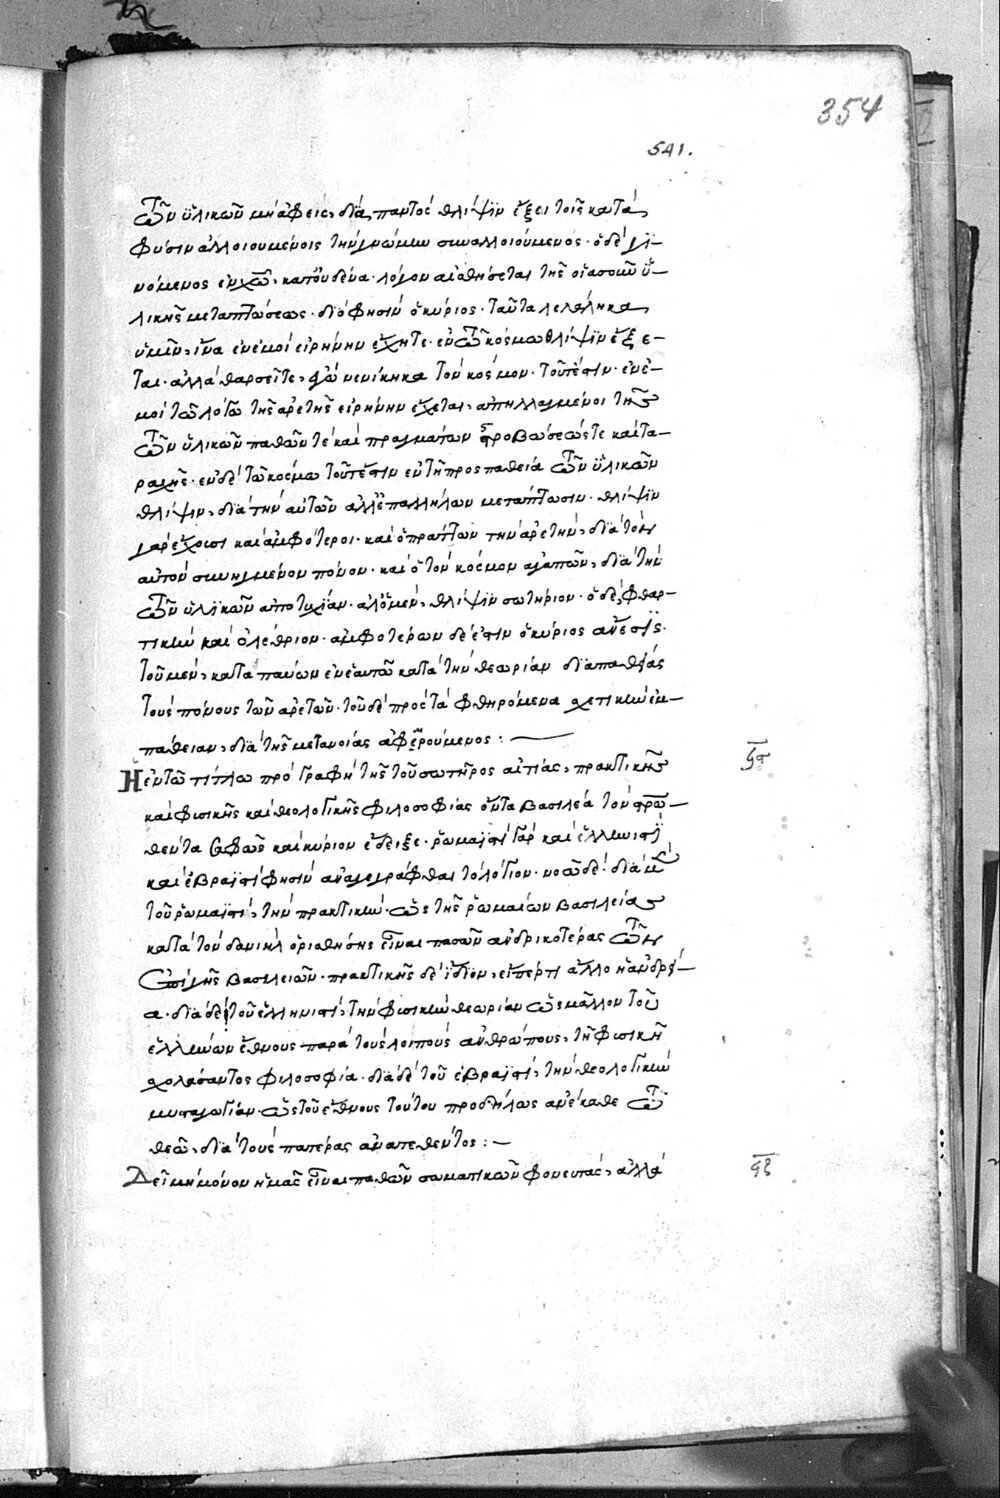 354
541.
τῶν ὑλικῶν μὴ ἀφεὶς, διὰ παντὸς θλίψιν ἕξει τοῖς κατὰ
φύσιν ἀλλοιουμένοις τὴν γνώμην συναλλοιούμενος· ὁ δὲ γι-
νόμενος ἐν χῶ, κατ' οὐδένα λόγον αἰσθήσεται τῆς οἱασοῦν ὑ-
λικῆς μεταπτώσεως· διό φησιν ὁ κύριος· ταῦτα λελάληκα
ὑμῖν, ἵνα ἐν ἐμοὶ εἰρήνην ἔχητε· ἐν τῶ κόσμω θλίψιν ἕξε-
ται· ἀλλὰ θαρσεῖτε, ἐγὼ νενίκηκα τὸν κόσμον· τουτέστιν· ἐν ἐ-
μοὶ τῶ λόγω τῆς ἀρετῆς εἰρήνην ἔχεται, ἀπηλλαγμένοι τῆς
τῶν ὑλικῶν παθῶν τὲ καὶ πραγμάτων στροβώσεώς τε καὶ τα-
ραχῆς· ἐν δὲ τῶ κόσμω τουτέστιν ἐν τῆ προσπαθεία τῶν ὑλικῶν
θλίψιν, διὰ τὴν αὐτῶν ἀλλεπαλλήλων μετάπτωσιν· θλίψιν
γὰρ ἔχουσι καὶ ἀμφότεροι· καὶ ὁ πράττων τὴν ἀρετὴν, διὰ τὸν
αὐτὸν συνημμένον πόνον· καὶ ὁ τὸν κόσμον ἀγαπῶν, διὰ τὴν
τῶν ὑλικῶν ἀποτυχίαν· ἀλ' ὁ μὲν, θλίψιν σωτήριον· ὁ δὲ, φθαρ-
τικὴν καὶ ὀλέθριον· ἀμφοτέρων δέ ἐστιν ὁ κύριος ἄνεσις·
τοῦ μὲν, καταπαύων ἐν ἑαυτῶ κατὰ τὴν θεωρίαν δι' ἀπαθείας
τοὺς πόνους τῶν ἀρετῶν· τοῦ δὲ πρὸς τὰ φθηρόμενα σχετικὴν ἐμ-
πάθειαν, διὰ τῆς μετανοίας ἀφαιρούμενος: —
Ἡ ἐν τῶ τίτλω προγραφὴ τῆς τοῦ σωτῆρος αἰτίας, πρακτικῆς
καὶ φυσικῆς καὶ θεολογικῆς φιλοσοφίας ὄντα βασιλέα τὸν στρω-
θέντα σαφῶς καὶ κύριον ἔδειξε· ῥωμαϊστὶ γὰρ καὶ ἑλληνιστὶ
καὶ ἑβραϊστὶ φησὶν ἀναγεγράφθαι τὸ λόγιον· νοῶ δὲ· διὰ μὲν
τοῦ ῥωμαϊστὶ, τὴν πρακτικὴν· ὡς τῆς ῥωμαίων βασιλείας
κατὰ τὸν δανιὴλ ὁρισθήσης εἶναι πασῶν ἀνδρικοτέρας τῶν
ἐπὶ γῆς βασιλειῶν· πρακτικῆς δὲ ἴδιον, εἴπερ τι ἄλλο ἡ ἀνδρεί-
α· διὰ δὲ τοῦ ἑλληνιστὶ, τὴν φυσικὴν θεωρίαν ὡς μᾶλλον τοῦ
ἑλλήνων ἔθνους παρὰ τοὺς λοιποὺς ἀνθρώπους, τῆ φυσικῆ
σχολάσαντος φιλοσοφία· διὰ δὲ τοῦ ἑβραϊστὶ, τὴν θεολογικὴν
μυσταγωγίαν· ὡς τοῦ ἔθνους τούτου προδήλως ἀνέκαθε τῶ
θεῶ, διὰ τοὺς πατέρας ἀνατεθέντος: —
Δεῖ μὴ μόνον ἡμᾶς εἶναι παθῶν σωματικῶν φονευτὰς, ἀλλὰ
ϟζ